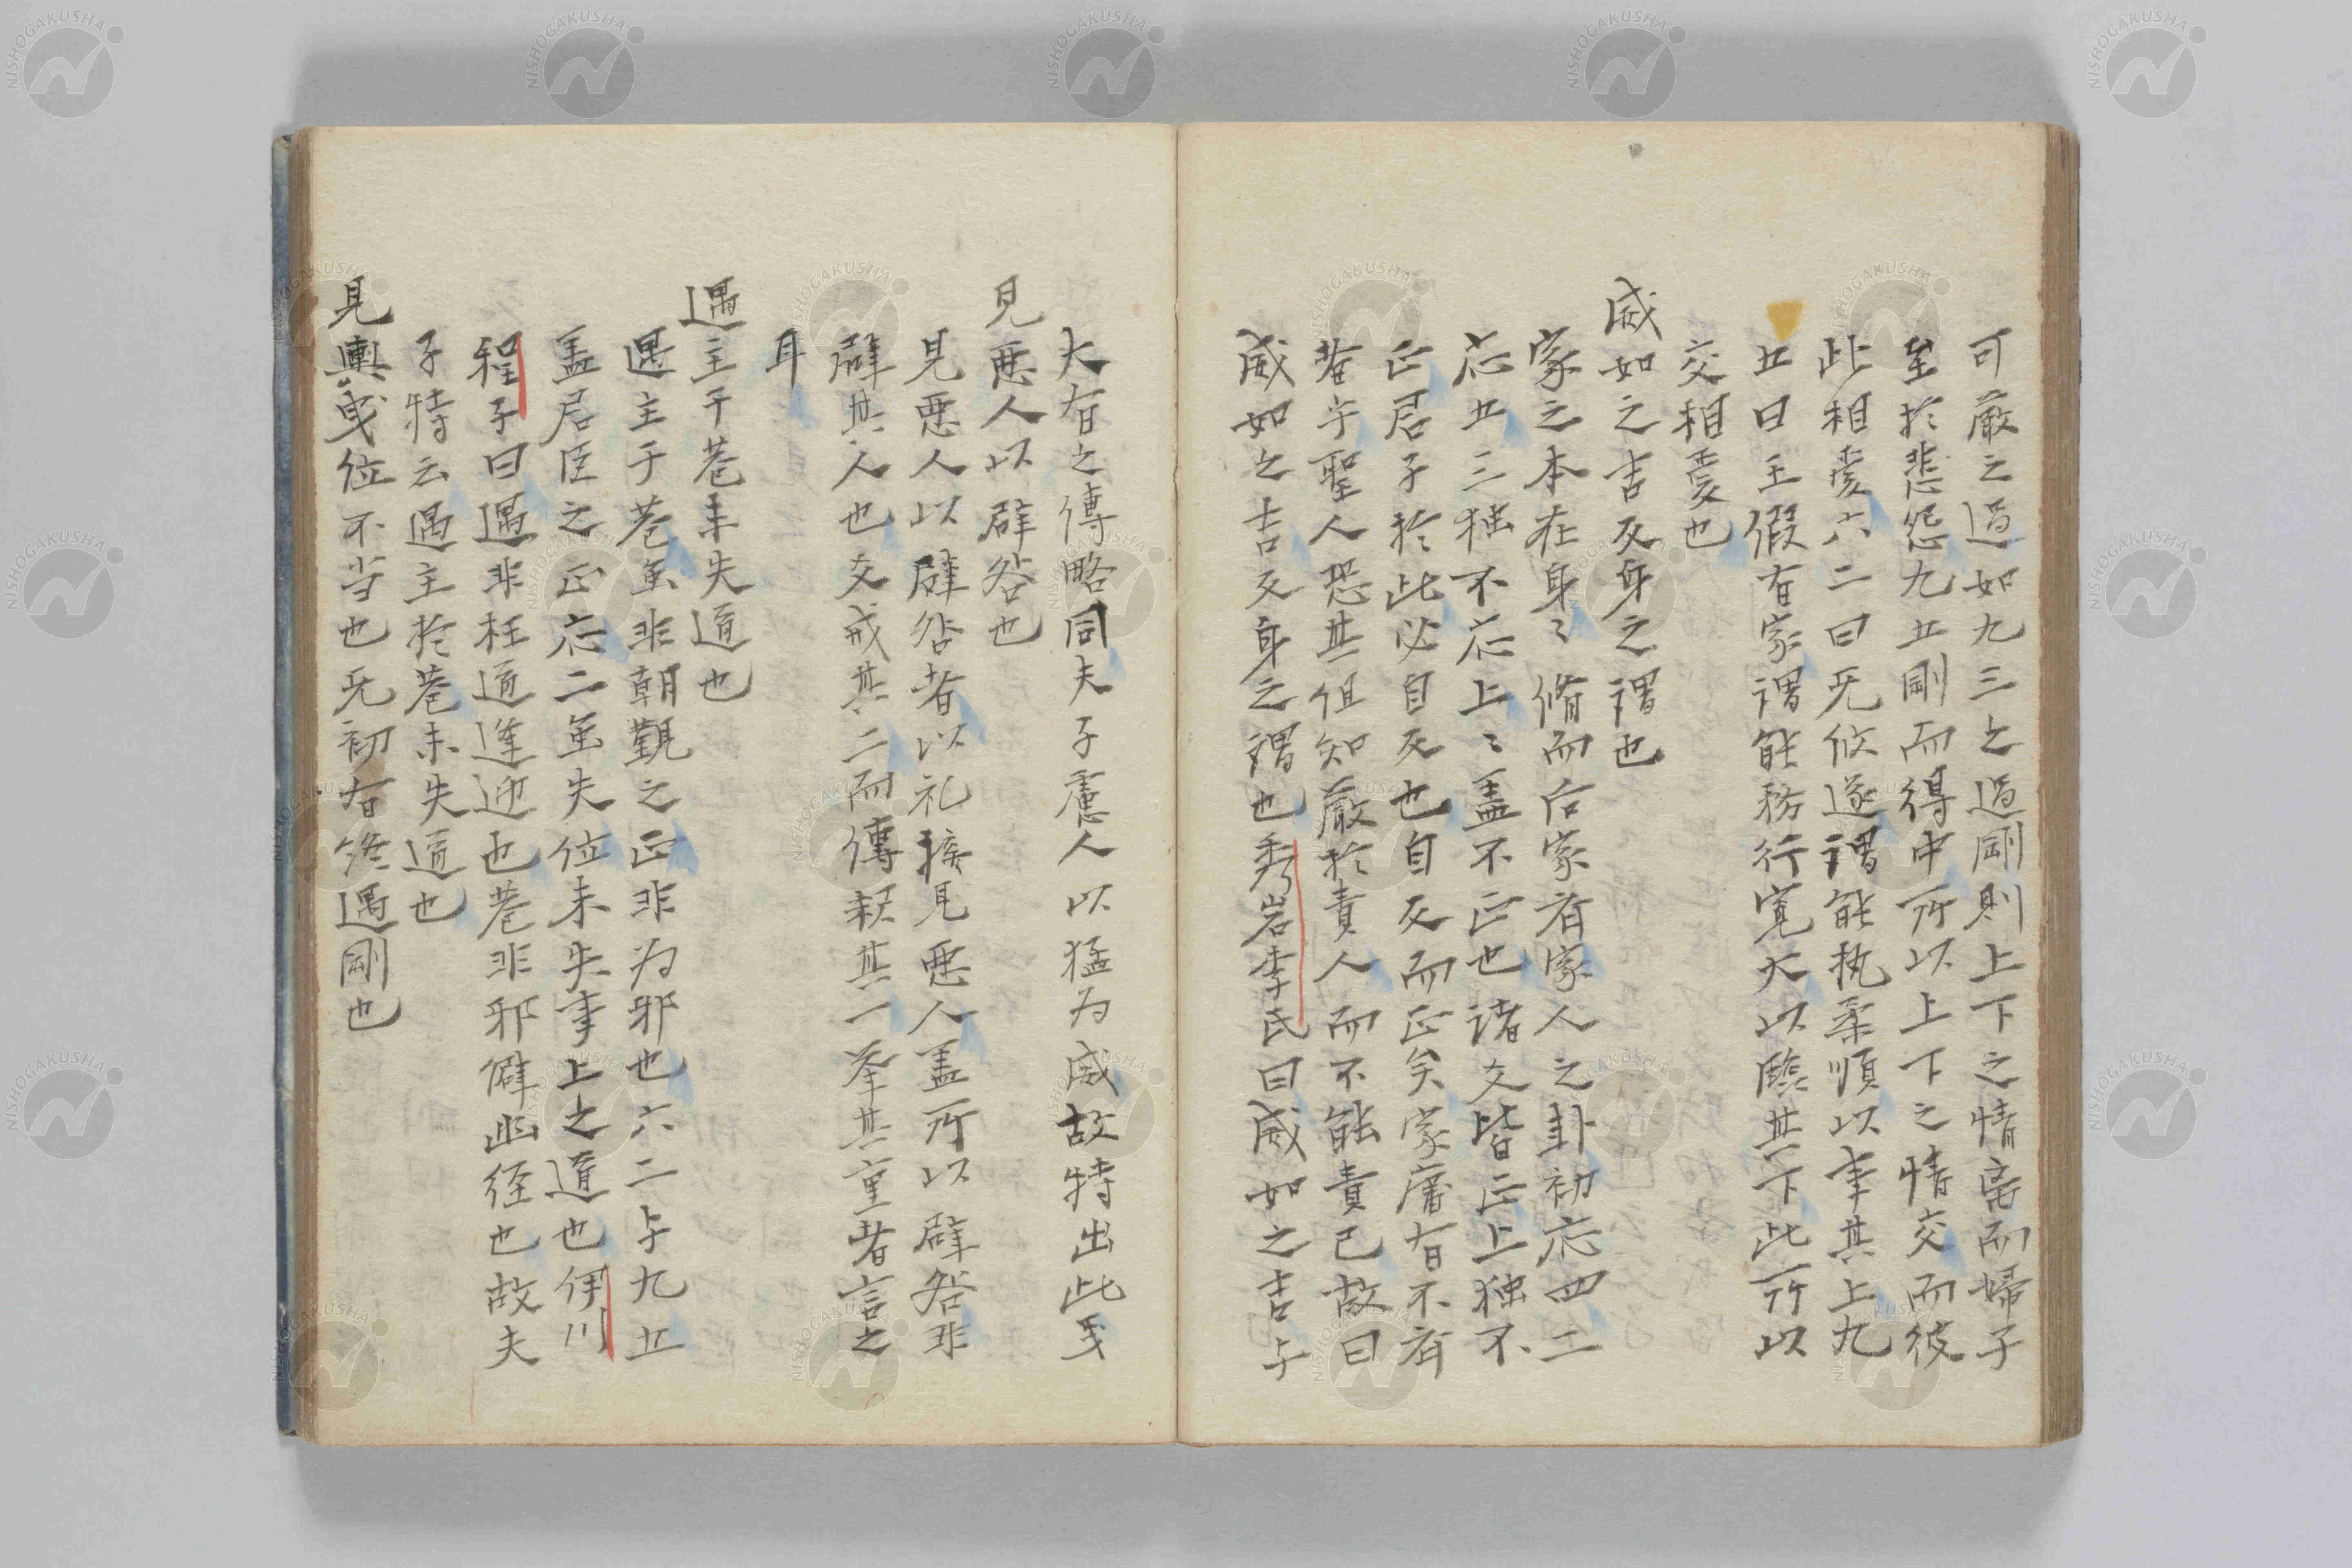 可厳之過如九三之過剛則上下之情离而婦子
至於悲怨九五剛而得中所以上下之情交而彼
此相愛六二曰无攸遂謂能执柔順以事其上九
五曰王假有家謂能務行寛大以臨其下此所以
交相愛也
威如之吉反身之謂也
家之本在身〻脩而后家者家人之卦初応四二
応五三独不応上〻盖不正也諸爻皆正上独不
正君子於此必自反也自反而正矣家庸有不齐
者乎聖人恐其但知厳於責人而不能責已故曰
威如之吉反身之謂也秀岩李氏曰威如之吉与
大有之傳略同夫子慮人以猛为威故特出此戋
見悪人以辟咎也
見悪人以辟咎者以礼接見悪人盖所以辟咎非
辟其人也爻戒其二而傳釈其一举其重者言之
耳
遇主于巷未失道也
遇主于巷虽非朝覲之正非为邪也六二与九五
盖君臣之正応二虽失位未失事上之道也伊川
程子曰遇非枉道逢迎也巷非邪僻幽径也故夫
子特云遇主於巷未失道也
見輿曳位不当也无初有终遇剛也
NISHOGAKUSHA